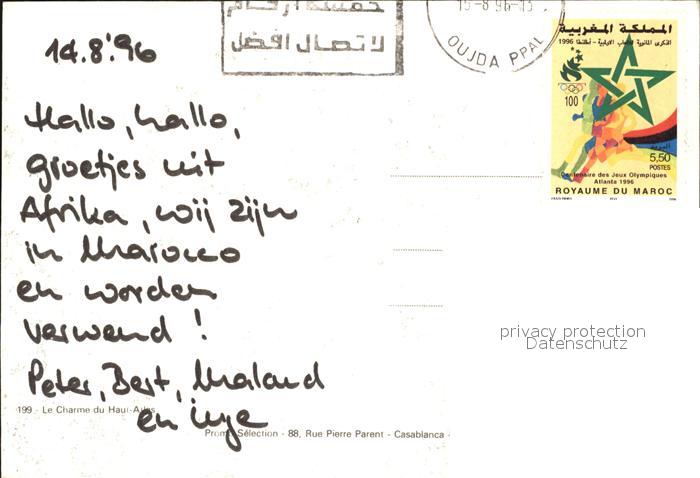 خمسة أرقام
لاتصال افضل
15-8 96-13
OUJDA PPAL
المملكة المغربية
1996
100
5,50
POSTES
Centenaire des Jeux Olympiques
Atlanta 1996
ROYAUME DU MAROC
14.8.'96
Hallo, hallo,
groetjes uit
Afrika, wij zijn
in Marocco
en worden
verwend!
Peter, Bert, Maland
en Inge
199 - Le Charme du Haut-Atlas
Sélection - 88, Rue Pierre Parent - Casablanca
privacy protection
Datenschutz